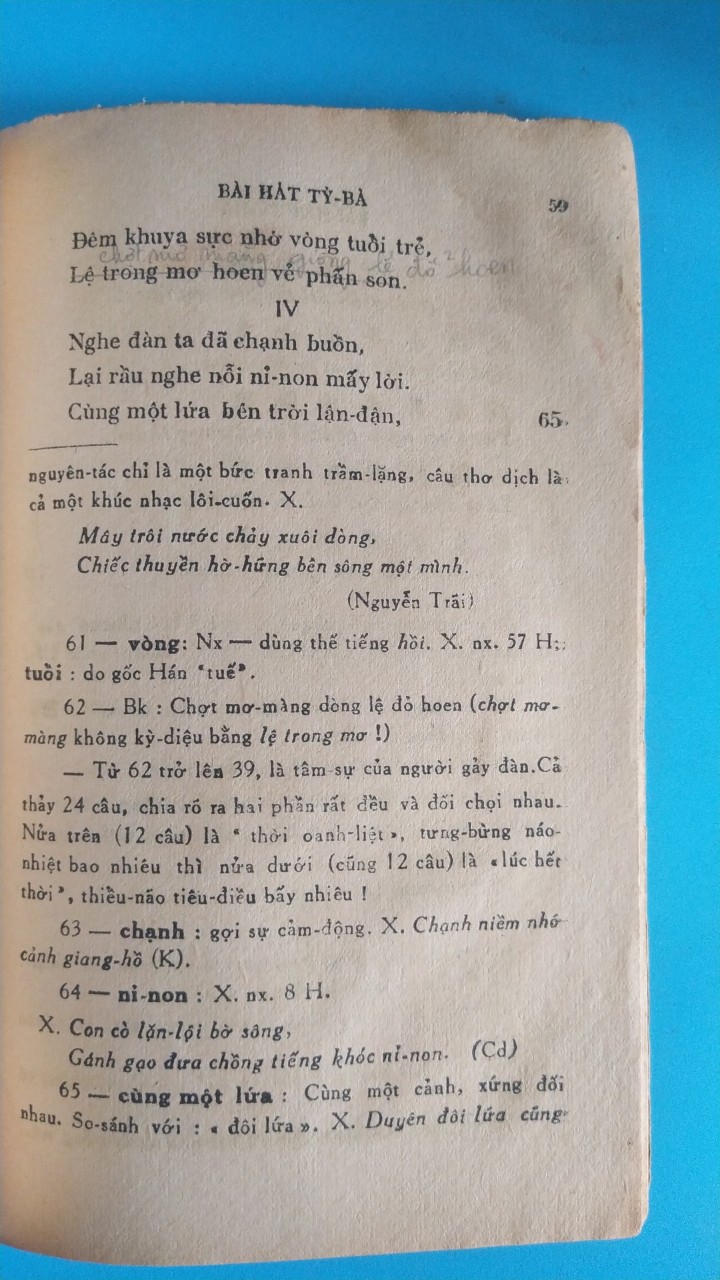 BÀI HÁT TỲ-BÀ 59
Đêm khuya sực nhớ vòng tuổi trẻ,
chợt mơ màng dòng lệ đỏ hoen
Lệ trong mơ hoen vẻ phấn son.
IV
Nghe đàn ta đã chạnh buồn,
Lại rầu nghe nỗi nỉ-non mấy lời.
Cùng một lứa bên trời lận-đận, 65
nguyên-tác chỉ là một bức tranh trầm-lặng, câu thơ dịch là
cả một khúc nhạc lôi-cuốn. X.
Mây trôi nước chảy xuôi dòng,
Chiếc thuyền hờ-hững bên sông một mình.
(Nguyễn Trãi)
61 — vòng: Nx — dùng thế tiếng hồi. X. nx. 57 H;
tuổi : do gốc Hán "tuế".
62 — Bk : Chợt mơ-màng dòng lệ đỏ hoen (chợt mơ-
màng không kỳ-diệu bằng lệ trong mơ !)
— Từ 62 trở lên 39, là tâm-sự của người gảy đàn.Cả
thảy 24 câu, chia rõ ra hai phần rất đều và đối chọi nhau.
Nửa trên (12 câu) là " thời oanh-liệt », tưng-bừng náo-
nhiệt bao nhiêu thì nửa dưới (cũng 12 câu) là «lúc hết
thời", thiều-não tiêu-điều bấy nhiêu !
63 — chạnh : gợi sự cảm-động. X. Chạnh niềm nhớ
cảnh giang-hồ (K).
64 — nỉ-non : X. nx. 8 H.
X. Con cò lặn-lội bờ sông,
Gánh gạo đưa chồng tiếng khóc nỉ-non. (Cd)
65 — cùng một lứa : Cùng một cảnh, xứng đối
nhau. So-sánh với : « đôi lứa ». X. Duyên đôi lứa cũng